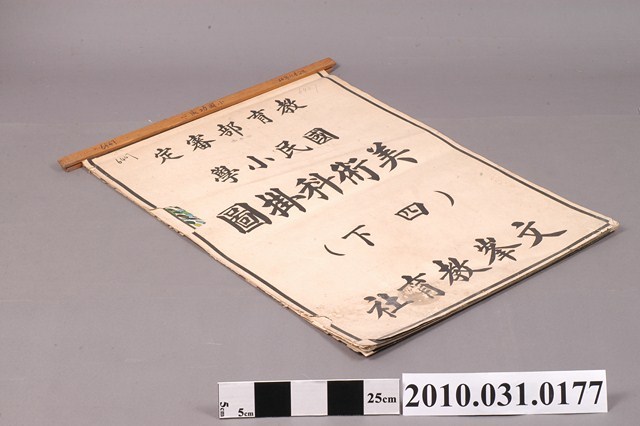 教育部審定
國民小學
美術科掛圖
（四下）
文峯教育社
5cm
5cm
25cm
2010.031.0177